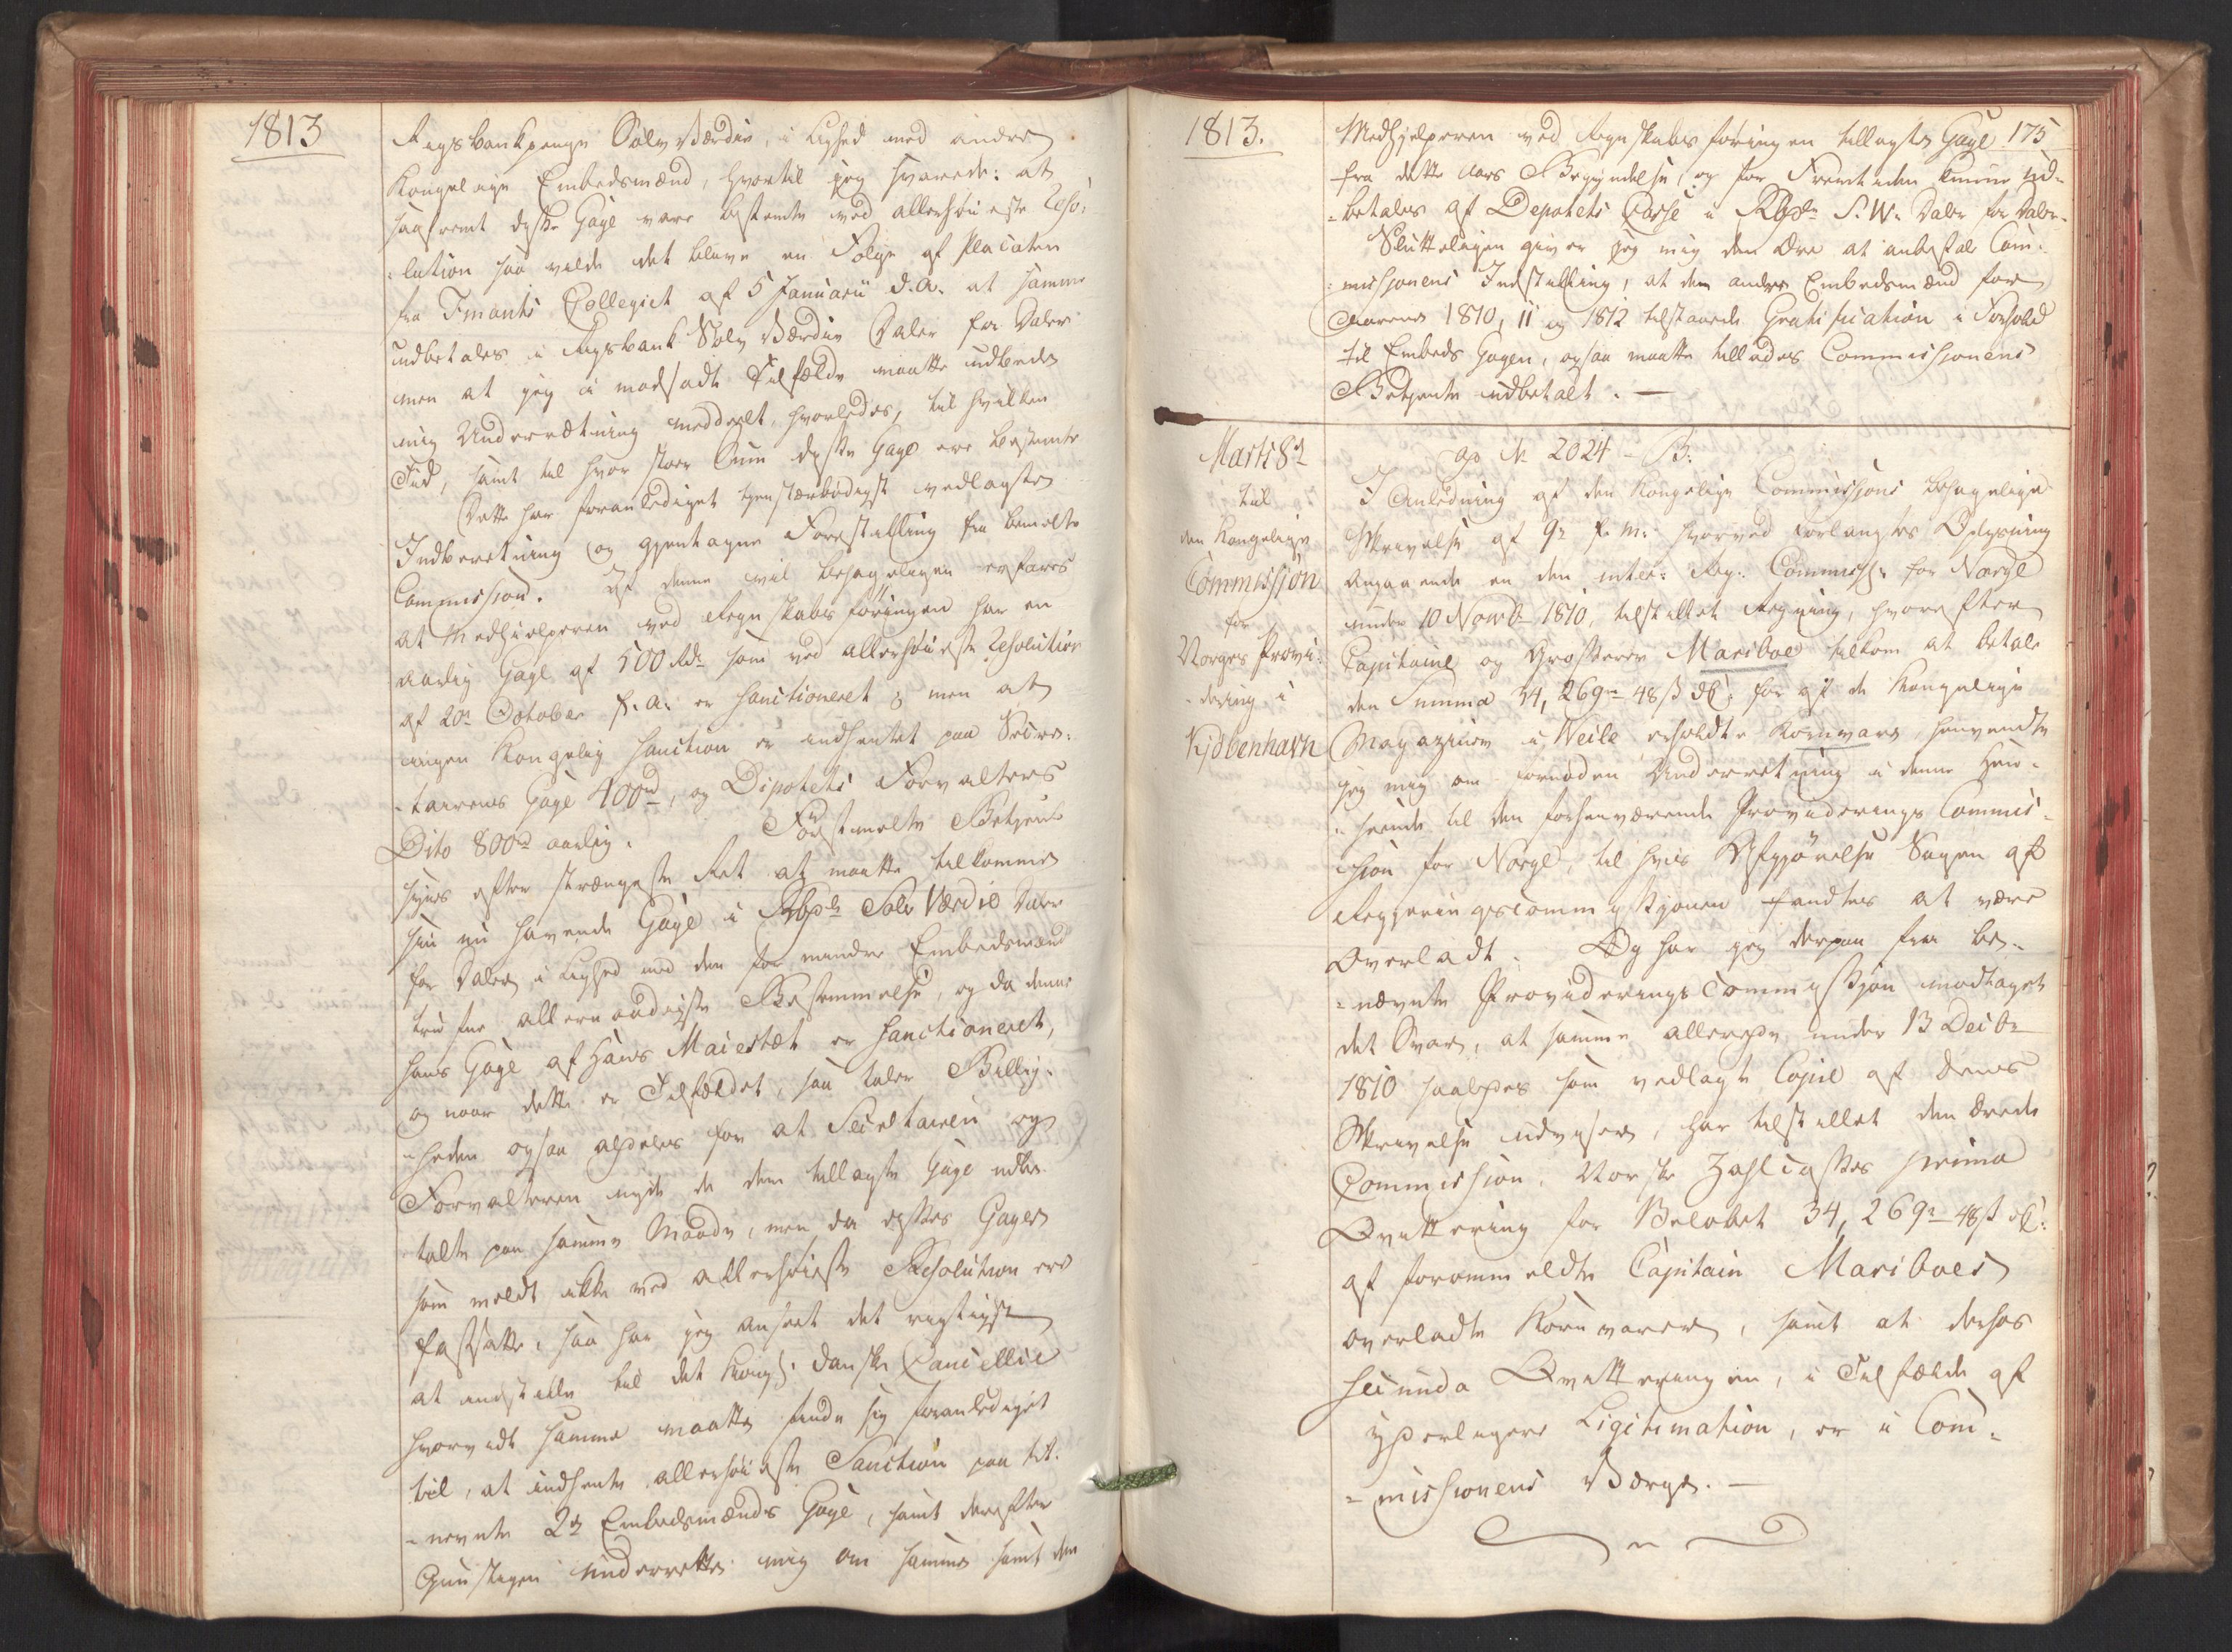 1813
Rigsbankpenge Sølv Værdie, i Liighed med andre
Kongelige Embedsmænd, hvortil jeg svarede: at
saafremt disse Gage vare bestemte ved allerhøieste Reso-
-lution saa vilde det blive en Følge af Placaten
fra Finants Collegiet af 5 Januarii d. A. at samme
udbetales i Rigsbank Sølv Værdie Daler for Daler
men at jeg i modsadt Tilfælde maatte udbede
mig Underretning meddeelt, hvorledes, til hvilken
Tid, samt til hvor stoer Sum disse Gage ere bestemte
Dette har foranlediget hendsærbødigst vedlagte
Indberetning og gientagne Forestilling fra bemelte
Commission. Af denne vil behageligen erfares
at Medhielperen ved Regnskabsføringen har en
aarlig Gage af 500 Rdr som ved allerhøieste Resolution
af 20de October f. A. er sanctioneret; men at
ingen Kongelig Sanction er indhentet paa Secre-
-tairens Gage 400rd, og Depotets Forvalters
Dito 800rd aarlig. Førstmelte Betjent
synes efter strængeste Ret at maatte tilkomme
sin nu havende Gage i Rbdr Sølv Værdie Daler
for Daler i Liighed med den for mindre Embedsmænd
trufne allernaadigste Bestemmelse, og da denne
hans Gage af Hans Maiestæt er Sanctioneret,
og naar dette er Tilfældet, saa taler Billig-
-heden ogsaa aldeles for at Secretairen og
Forvalteren nyde de dem tillagte Gage udbe-
-talte paa samme Maade, men da disses Gager
som meldt ikke ved allerhøieste Resolution ere
fastsatte, saa har jeg anseet det rigtigst
at indstille til det Kongl. danske Cancellie
hvorvidt samme maatte finde sig foranlediget
til, at indhente allerhøieste Sanction paa bt.
-nevnte 2de Embedsmænds Gage, samt derefter
Gunstigen underrette mig om samme samt den
1813.
Medhjelperen ved Regnskabsføringen tillagte Gage 175
fra dette Aars Begyndelse, og for Fremtiden kunne ud-
-betales af Depotets Casse i Rbdr S. W. Daler for Daler.
Sluttelingen giver jeg mig den Ære at anbefale Com-
-missionens Indstilling, at den andre Embedsmænd for
Aarene 1810, 11 og 1812 tilstaaede Gratification i Forhold
til Embeds Gagen, ogsaa maatte tillades Commissionens
Betjente udbetalt. —
Marts 8de
til
den Kongelige
Commission
for
Norges Provi-
-dering i
Kjøbenhavn
ap No 2024 - B.
I Anledning af den Kongelige Commissions behagelige
Skrivelse af 9de f. M. hvorved forlangtes Oplysning
angaaende en den inter: Reg: Commiss: for Norge
under 10 Novbr 1810, tilstillet Regning, hvorefter
Capitaine og Grosserer Mariboe tilkom at betale
den Summa 34,269rd 48 ß dC: for af de Kongelige
Magaziner i Veile erholdte Kornvare, henvendte
jeg mig om fornøden Underretning i denne Hen-
-seende til den forhenværende Provideringscommis-
-sion for Norge, til hvis Afgjørelse Sagen af
Regjeringscommissionen fandtes at være
Overladt. Og har jeg derpaa fra be-
-nævnte Provideringscommission modtaget
det Svar, at samme allerede under 13 Decbr
1810 saaledes som vedlagte Copie af dens
Skrivelse udviser, har tilstillet den ærede
Commission, Norske Zahlcasses prima
Qvittering for Beløbet 34,269rd 48 ß dC:
af forommeldte Capitain Mariboes
overladte Kornvarer, samt at dersos
secunda Qvitteringen, i Tilfælde af
yderligere Ligitimation, er i Com-
-missionens Værge. —